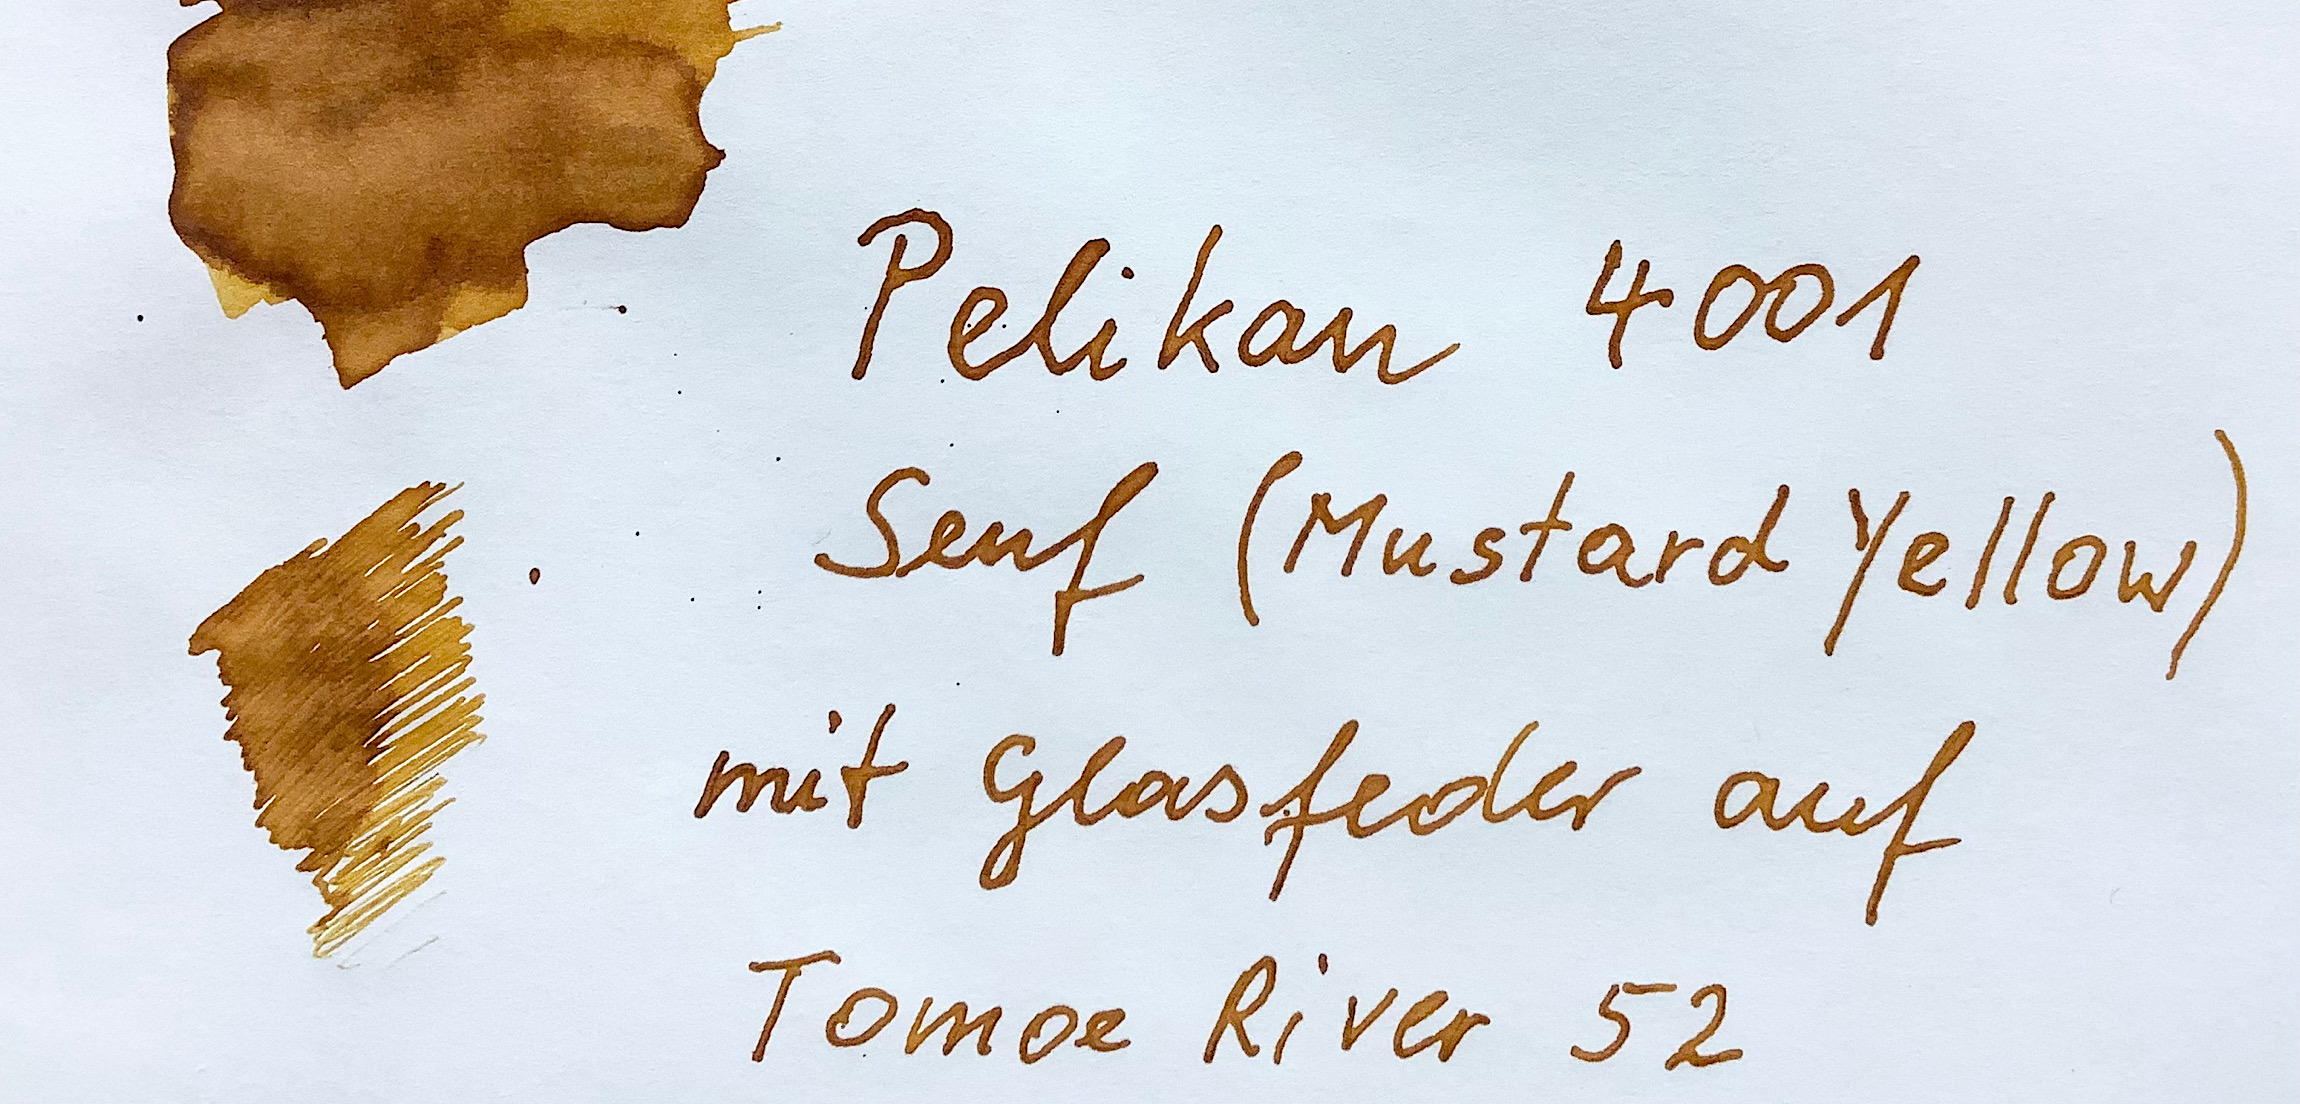 Pelikan 4001
Senf (Mustard Yellow)
mit Glasfeder auf
Tomoe River 52